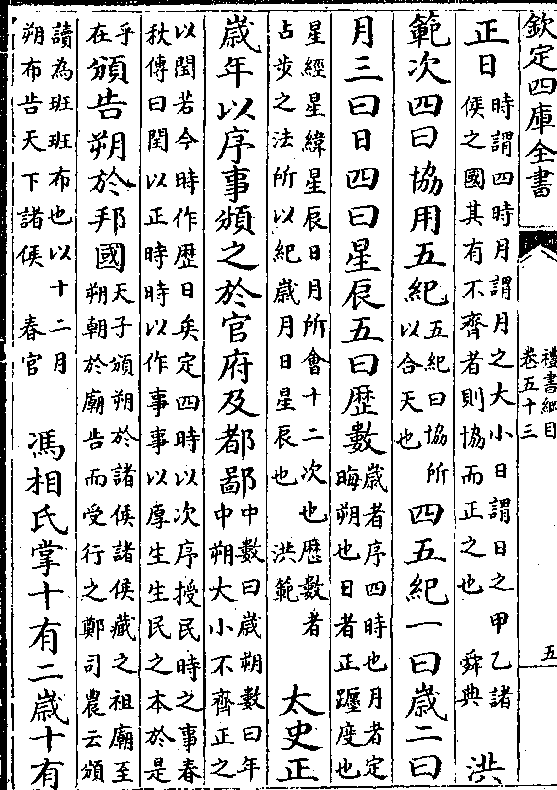 欽定四庫全書
禮書綱目
卷五十三
五
正日
時謂四時月謂月之大小日謂日之甲乙諸
侯之國其有不齊者則協而正之也 舜典
洪
範次四曰協用五紀
五紀曰協所
以合天也
四五紀一曰歲二曰
月三曰日四曰星辰五曰歴數
歲者序四時也月者定
晦朔也日者正躔度也
星經星緯星辰日月所會十二次也歴數者
占步之法所以紀歲月日星辰也 洪範
太史正
歲年以序事頒之於官府及都鄙
中數曰歲朔數曰年
中朔大小不齊正之
以閏若今時作歴日矣定四時以次序授民時之事春
秋傳曰閏以正時時以作事事以厚生生民之本於是
乎
在
頒告朔於邦國
天子頒朔於諸侯諸侯藏之祖廟至
朔朝於廟告而受行之鄭司農云頒
讀為班班布也以十二月
朔布告天下諸侯 春官
馮相氏掌十有二歲十有